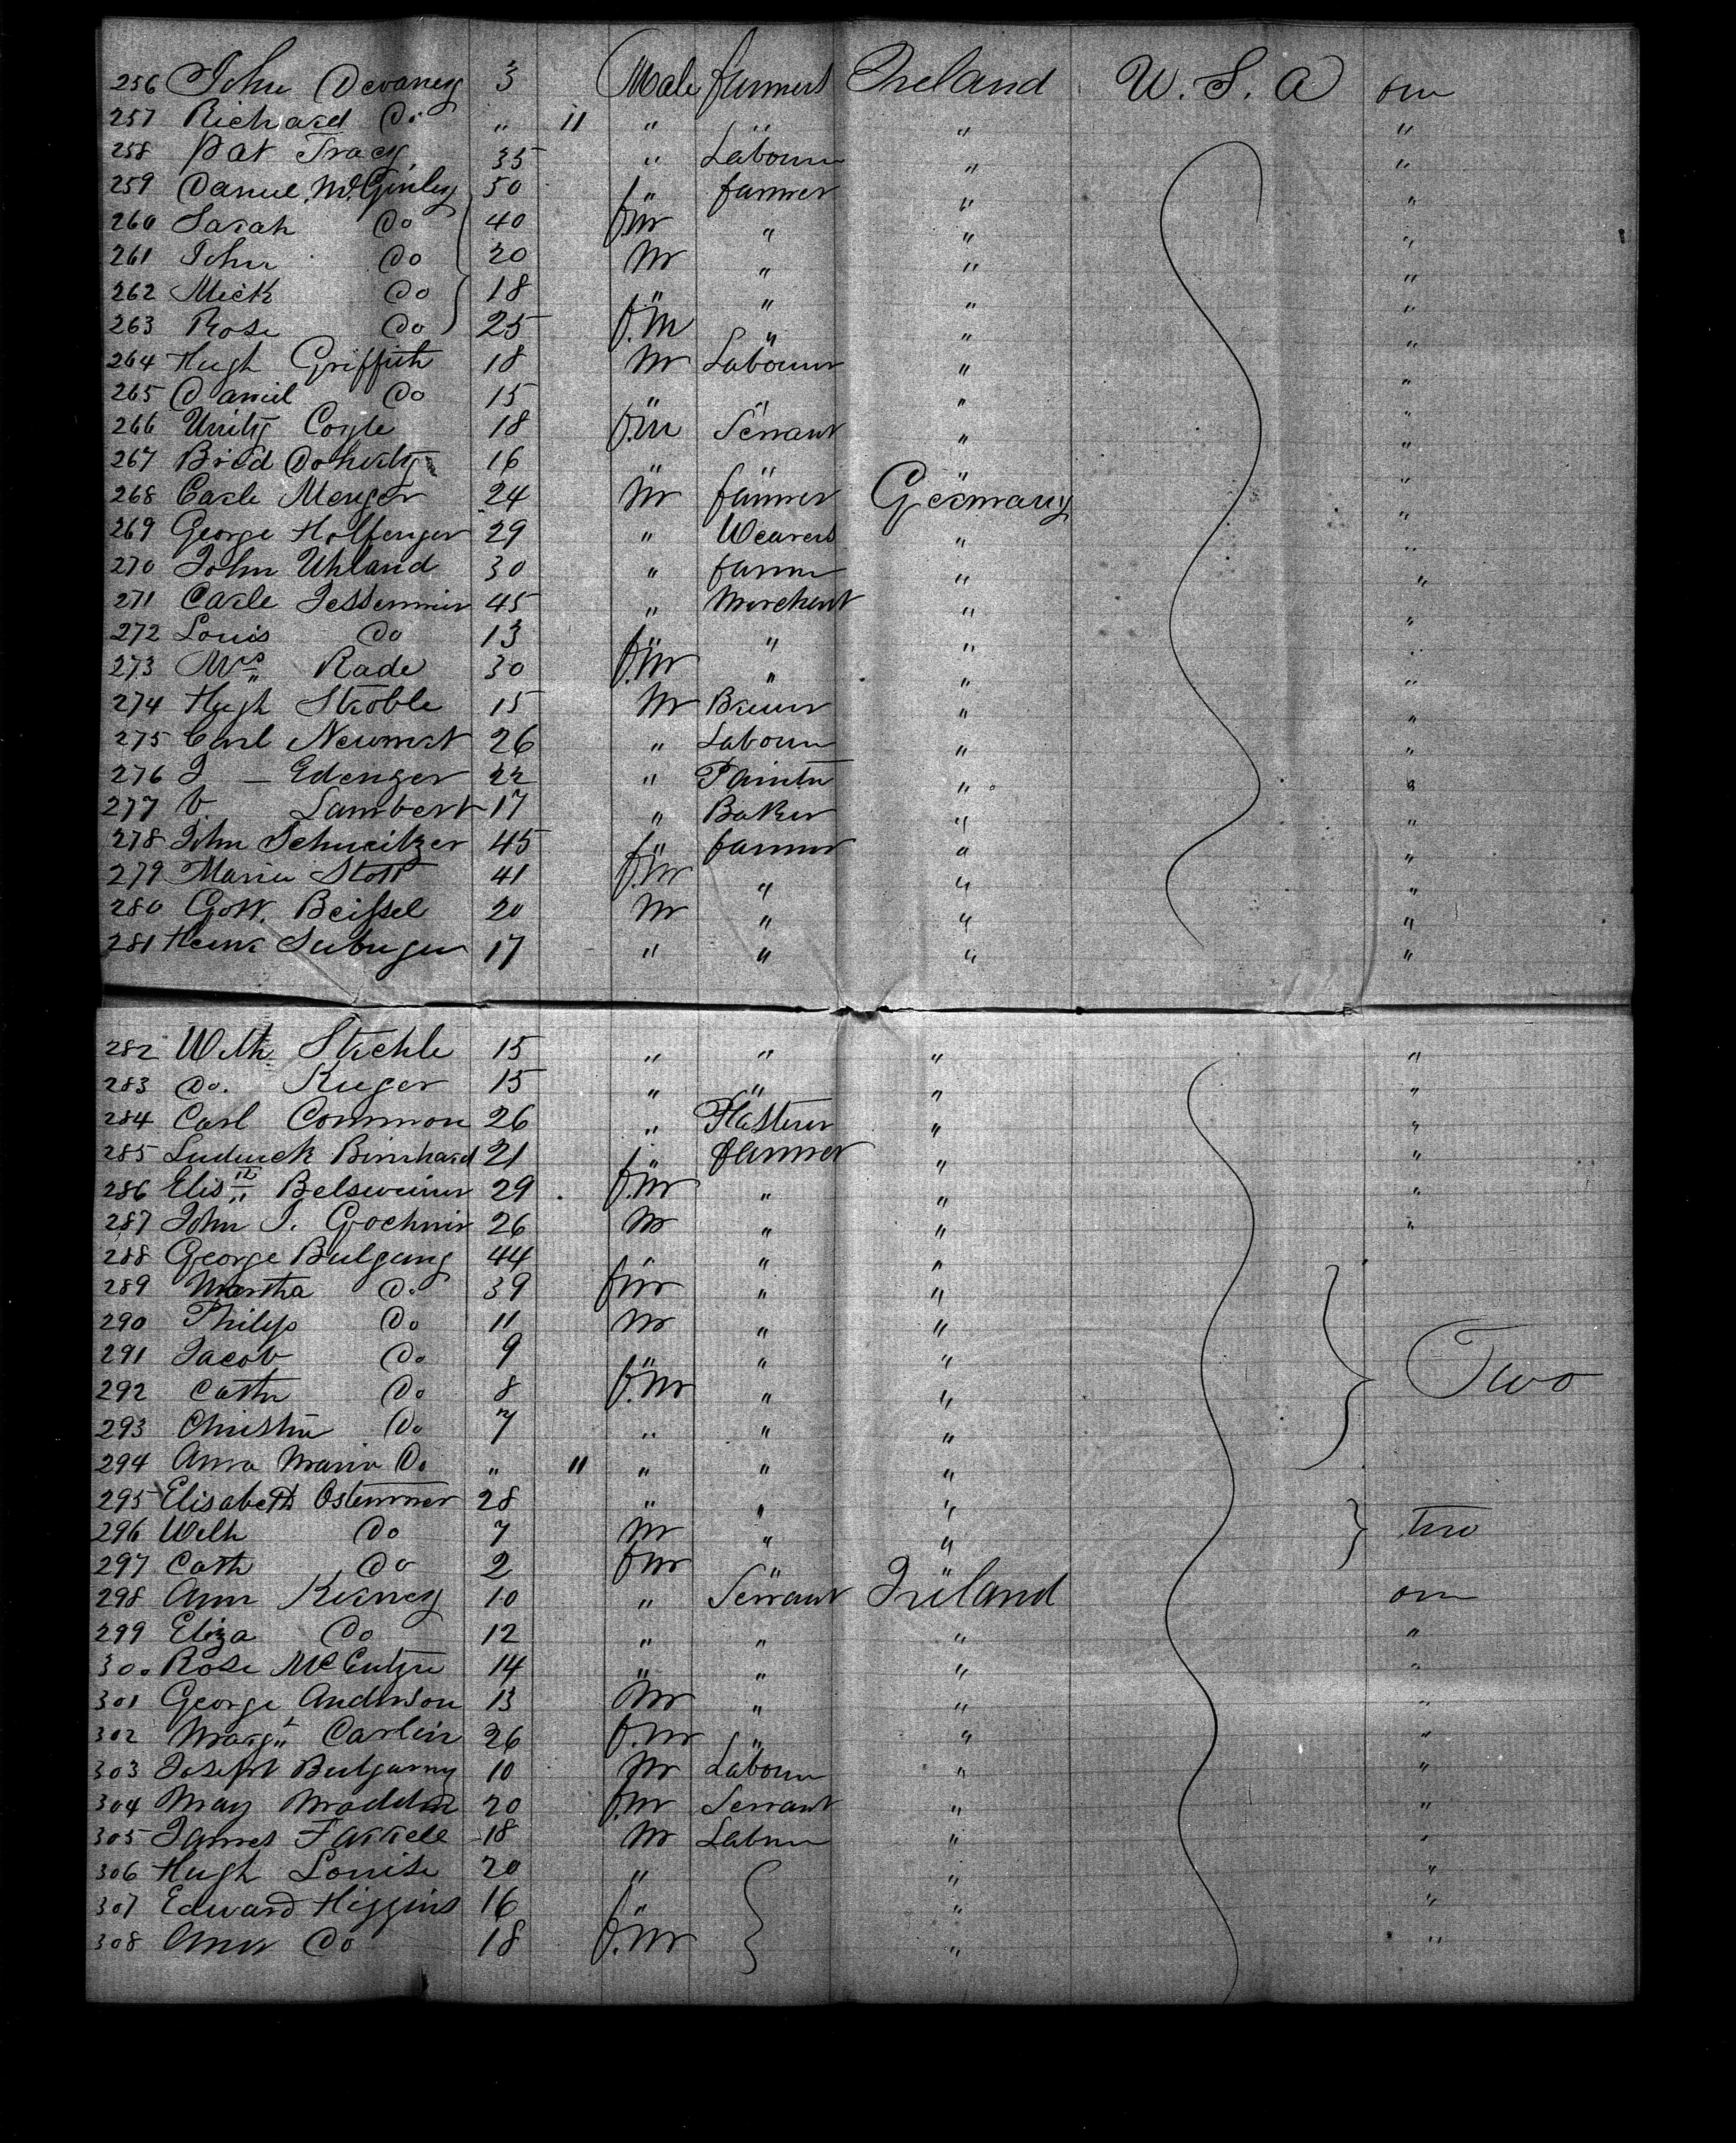 256 John Devaney 3 Male farmers Ireland U. S. A one
257 Richard Do " 11 " " " "
258 Pat Tracy 35 " Labourer " "
259 Daniel McGinley 50 " farmer " "
260 Sarah Do 40 f.m " " "
261 John Do 20 M " " "
262 Mick Do 18 " " " "
263 Rose Do 25 f.m " " "
264 Hugh Griffith 18 M Labourer " "
265 Daniel Do 15 " " " "
266 Unity Coyle 18 f.m Servant " "
267 Brid Doherty 16 " " " "
268 Carle Menger 24 M farmer Germany "
269 George Holfenger 29 " Weavers " "
270 John Uhland 30 " farmer " "
271 Carle 45 " Merchant " "
272 Louis Do 13 " " " "
273 Mrs Rade 30 f.m " " "
274 Hugh Stroble 15 M Brewer " "
275 Carl 26 " Labourer " "
276 J — Edenger 22 " Painter " "
277 V. Lambert 17 " Baker " "
278 John Schweitzer 45 " farmer " "
279 Maria Stott 41 f.m " " "
280 Gott. Beissel 20 M " " "
281 17 " " " "
282 Wilh Stehle 15 " " " "
283 Do. Kuger 15 " " " "
284 Carl Common 26 " Plasterer " "
285 21 " farmer " "
286 Elisth 29 f.m " " "
287 John J. 26 M " " "
288 George Bulgang 44 " "
289 Martha Do 39 f.m " "
290 Philip Do 11 M " "
291 Jacob Do 9 " " " Two
292 Cath Do 8 f.m " "
293 Christin Do 7 " " "
294 Anna Maria Do " 11 " " "
295 Elisabeth 28 " " "
296 Wilh Do 7 M " " two
297 Cath Do 2 f.m " "
298 Ann 10 " Servant Ireland one
299 Eliza Do 12 " " " "
300 Rose McEntyre 14 " " " "
301 George Anderson 13 M " " "
302 Margt Carlin 26 f.m " " "
303 Joseph 10 M Labourer " "
304 May Madden 20 f.m Servant " "
305 James Farrell 18 M Labourer " "
306 Hugh Louise 20 " " "
307 Edward Higgins 16 " " "
308 Ann Do 18 f.m " "